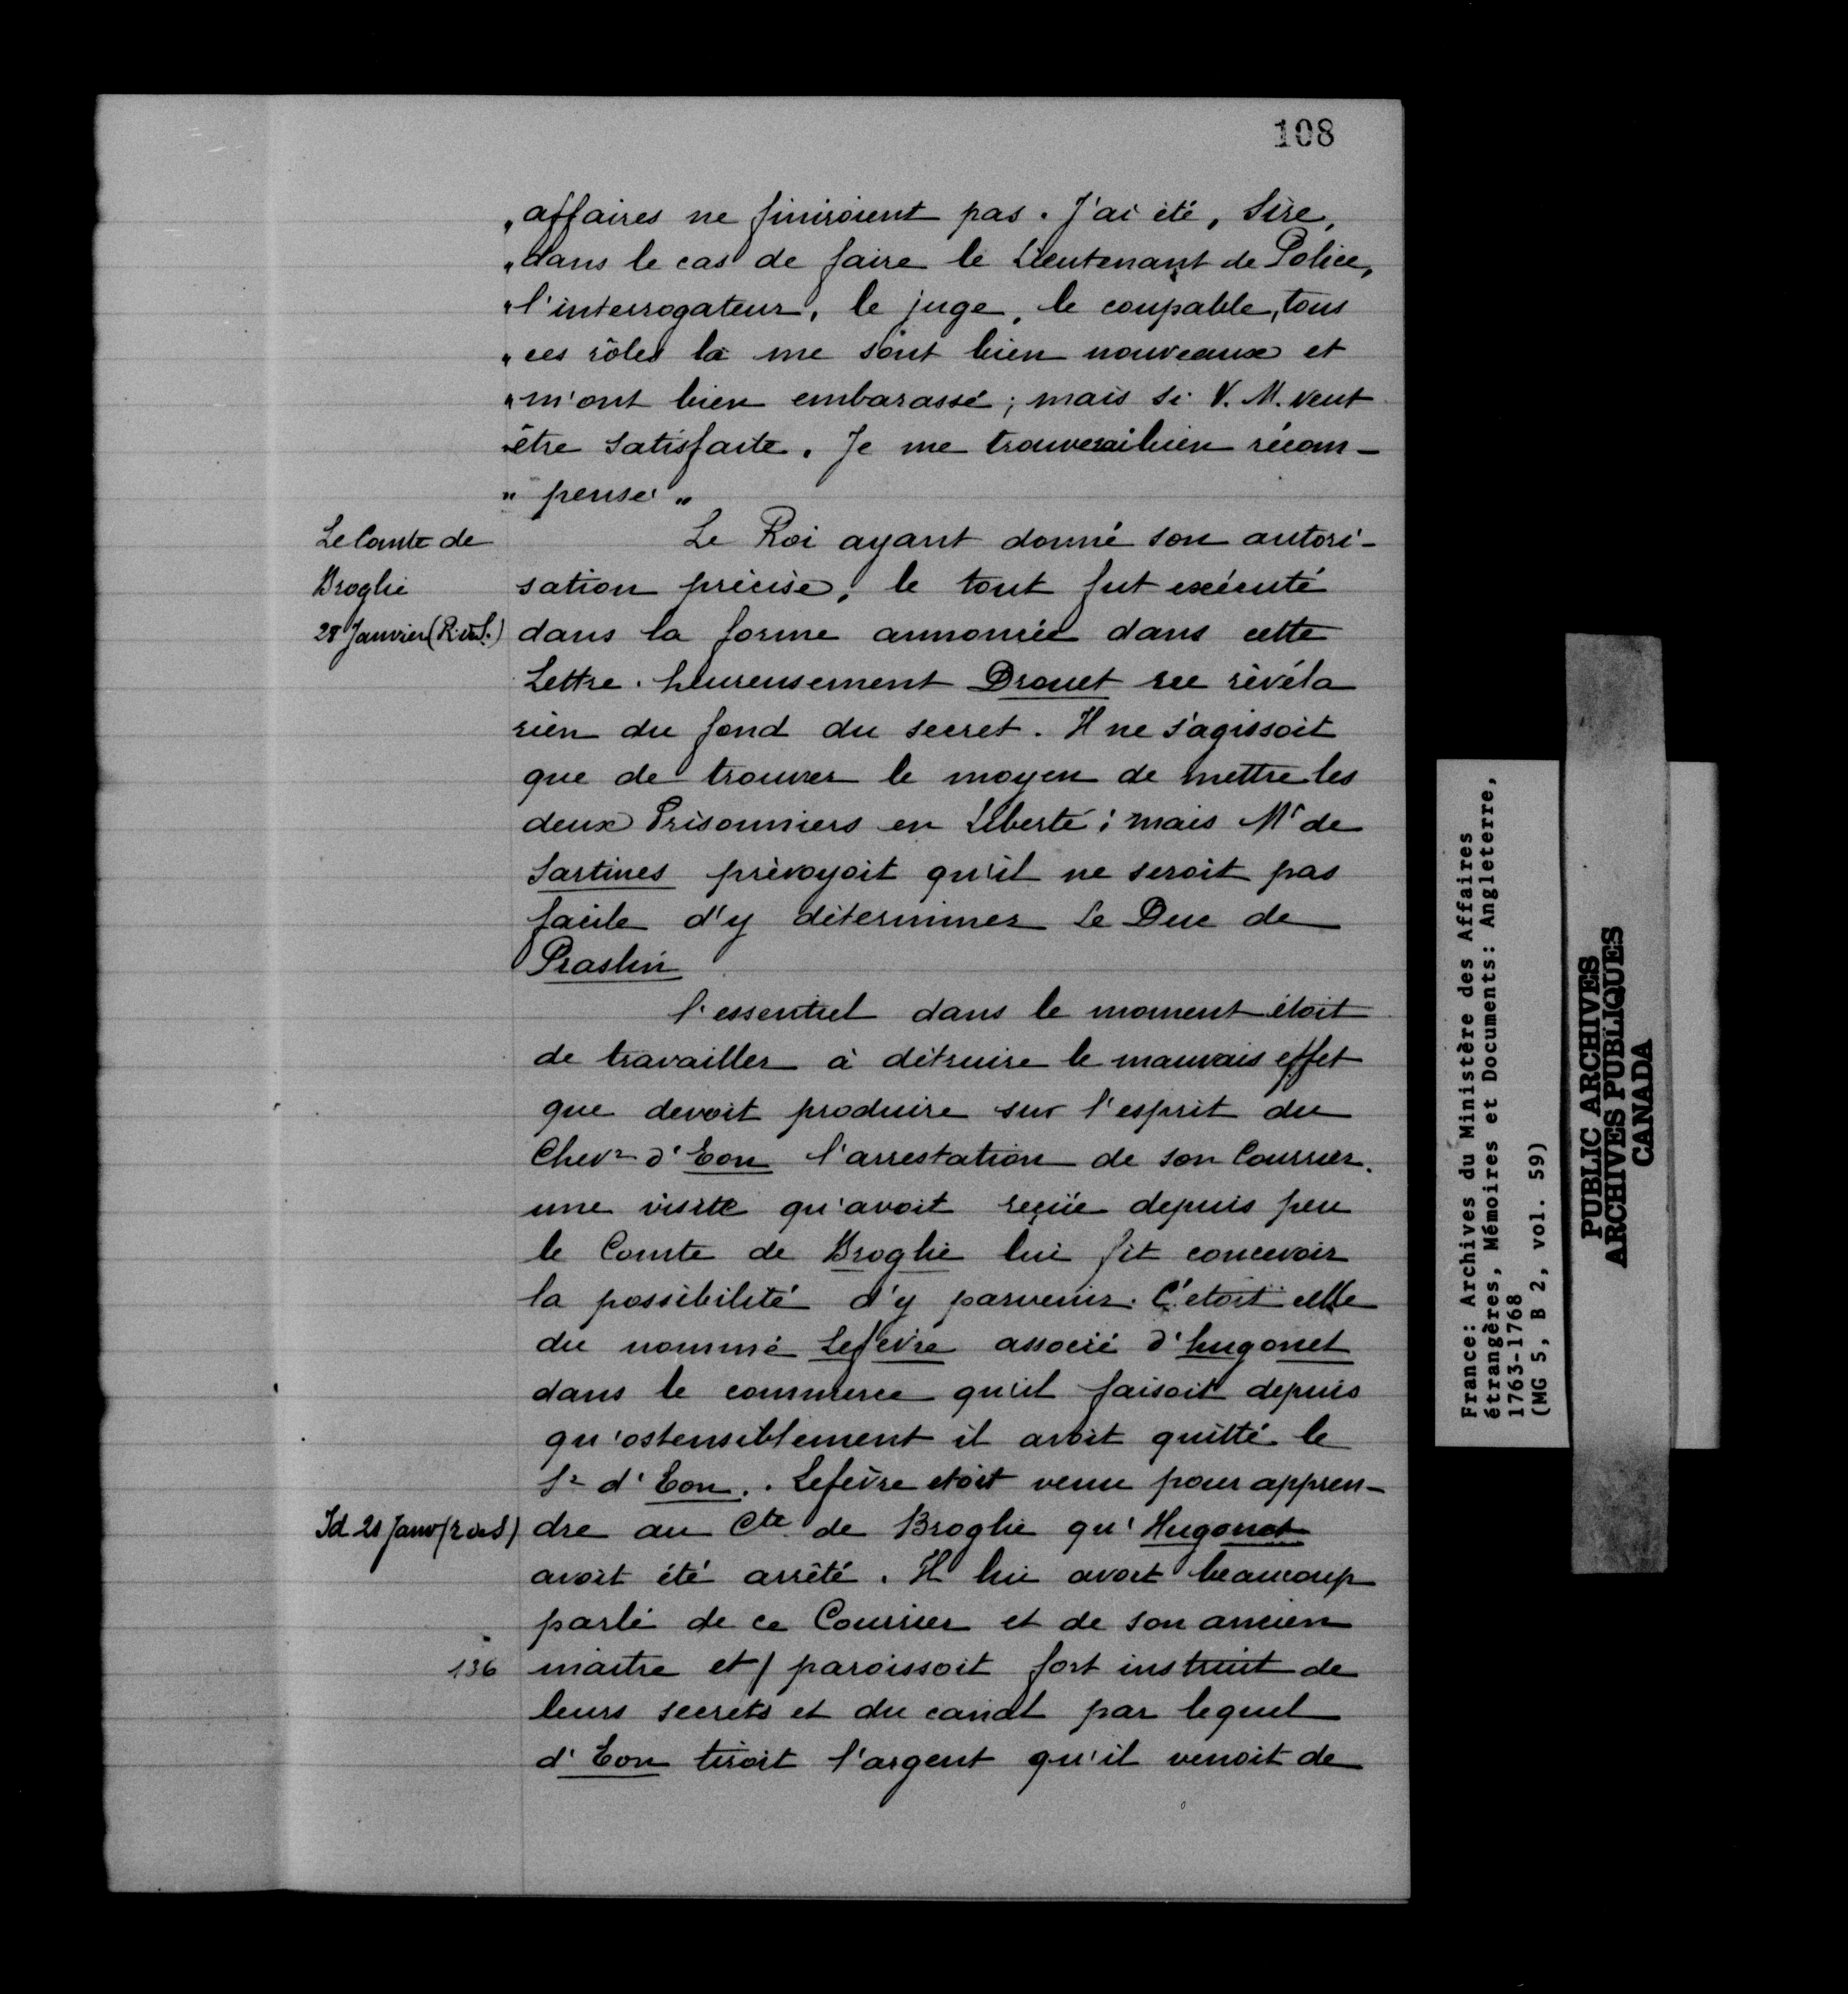 108
„affaires ne finiroient pas. J'ai été, Sire,
„dans le cas de faire le Lieutenant de Police,
„l'interrogateur, le juge, le coupable, tous
„ces rôles là me sont bien nouveaux et
„m'ont bien embarassé; mais si V. M. veut
„être satisfaite. Je me trouverai bien récom-
„pensé„
Le Comte de
Broglie
28 Janvier (R. à S.)
Le Roi ayant donné son autori-
sation précise, le tout fut exécuté
dans la forme annoncée dans cette
Lettre. heureusement Drouet ne révéla
rien du fond du secret. Il ne s'agissoit
que de trouver le moyen de mettre les
deux Prisonniers en Liberté; mais Mr de
Sartines prévoyoit qu'il ne seroit pas
facile d'y déterminer le Duc de
Praslin
l'essentiel dans le moment étoit
de travailler à détruire le mauvais effet
que devoit produire sur l'esprit du
Chevr d'Eon l'arrestation de son Courrier.
une visite qu'avoit reçüe depuis peu
le Comte de Broglie lui fit concevoir
la possibilité d'y parvenir. C'étoit celle
du nommé Lefevre associé d'hugonet
dans le commerce qu'il faisoit depuis
qu'ostensiblement il avoit quitté le
Sr d'Eon. . Lefèvre étoit venu pour appren-
Id 21 Janv (R à S)
dre au Cte de Broglie qu'Hugonet
avoit été arrêté. Il lui avoit beaucoup
parlé de ce Courrier et de son ancien
136
maitre et / paroissoit fort instruit de
leurs secrets et du canal par lequel
d'Eon tiroit l'argent qu'il venoit de
France: Archives du Ministère des Affaires
étrangères, Mémoires et Documents: Angleterre,
1763-1768
(MG 5, B 2, vol. 59)
PUBLIC ARCHIVES
ARCHIVES PUBLIQUES
CANADA